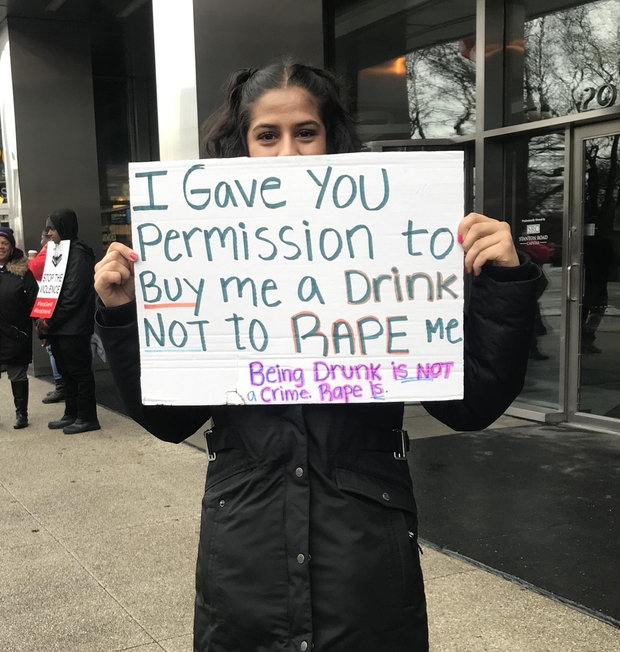 I Gave YOU
Permission to
Buy me a Drink
NOT to RAPE me
Being Drunk is NOT
a Crime. Rape Is.
STOP THE
VIOLENCE
STANTON ROAD
CAPITAL
20